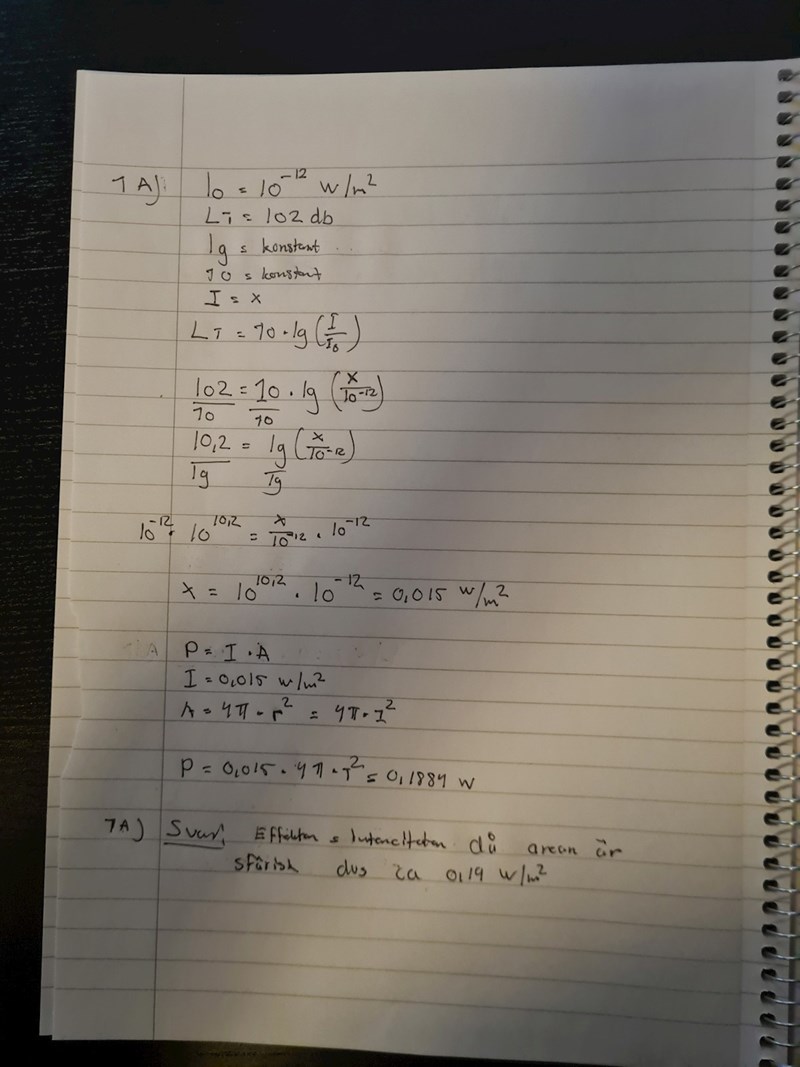 1 A) I0 = 10^-12 W/m²
LI = 102 db
lg = konstant
10 = konstant
I = x
LI = 10 · lg (I/I0)
102/10 = 10/10 · lg (x/10^-12)
10,2/lg = lg/lg (x/10^-12)
10^-12 · 10^10,2 = x/10^-12 · 10^-12
x = 10^10,2 · 10^-12 = 0,015 w/m²
P = I · A
I = 0,015 w/m²
A = 4π · r² = 4π · 1²
P = 0,015 · 4π · 1² = 0,1884 w
1A) Svar: Effekten = Intenciteten då arean är
sfärisk dvs ca 0,19 W/m²